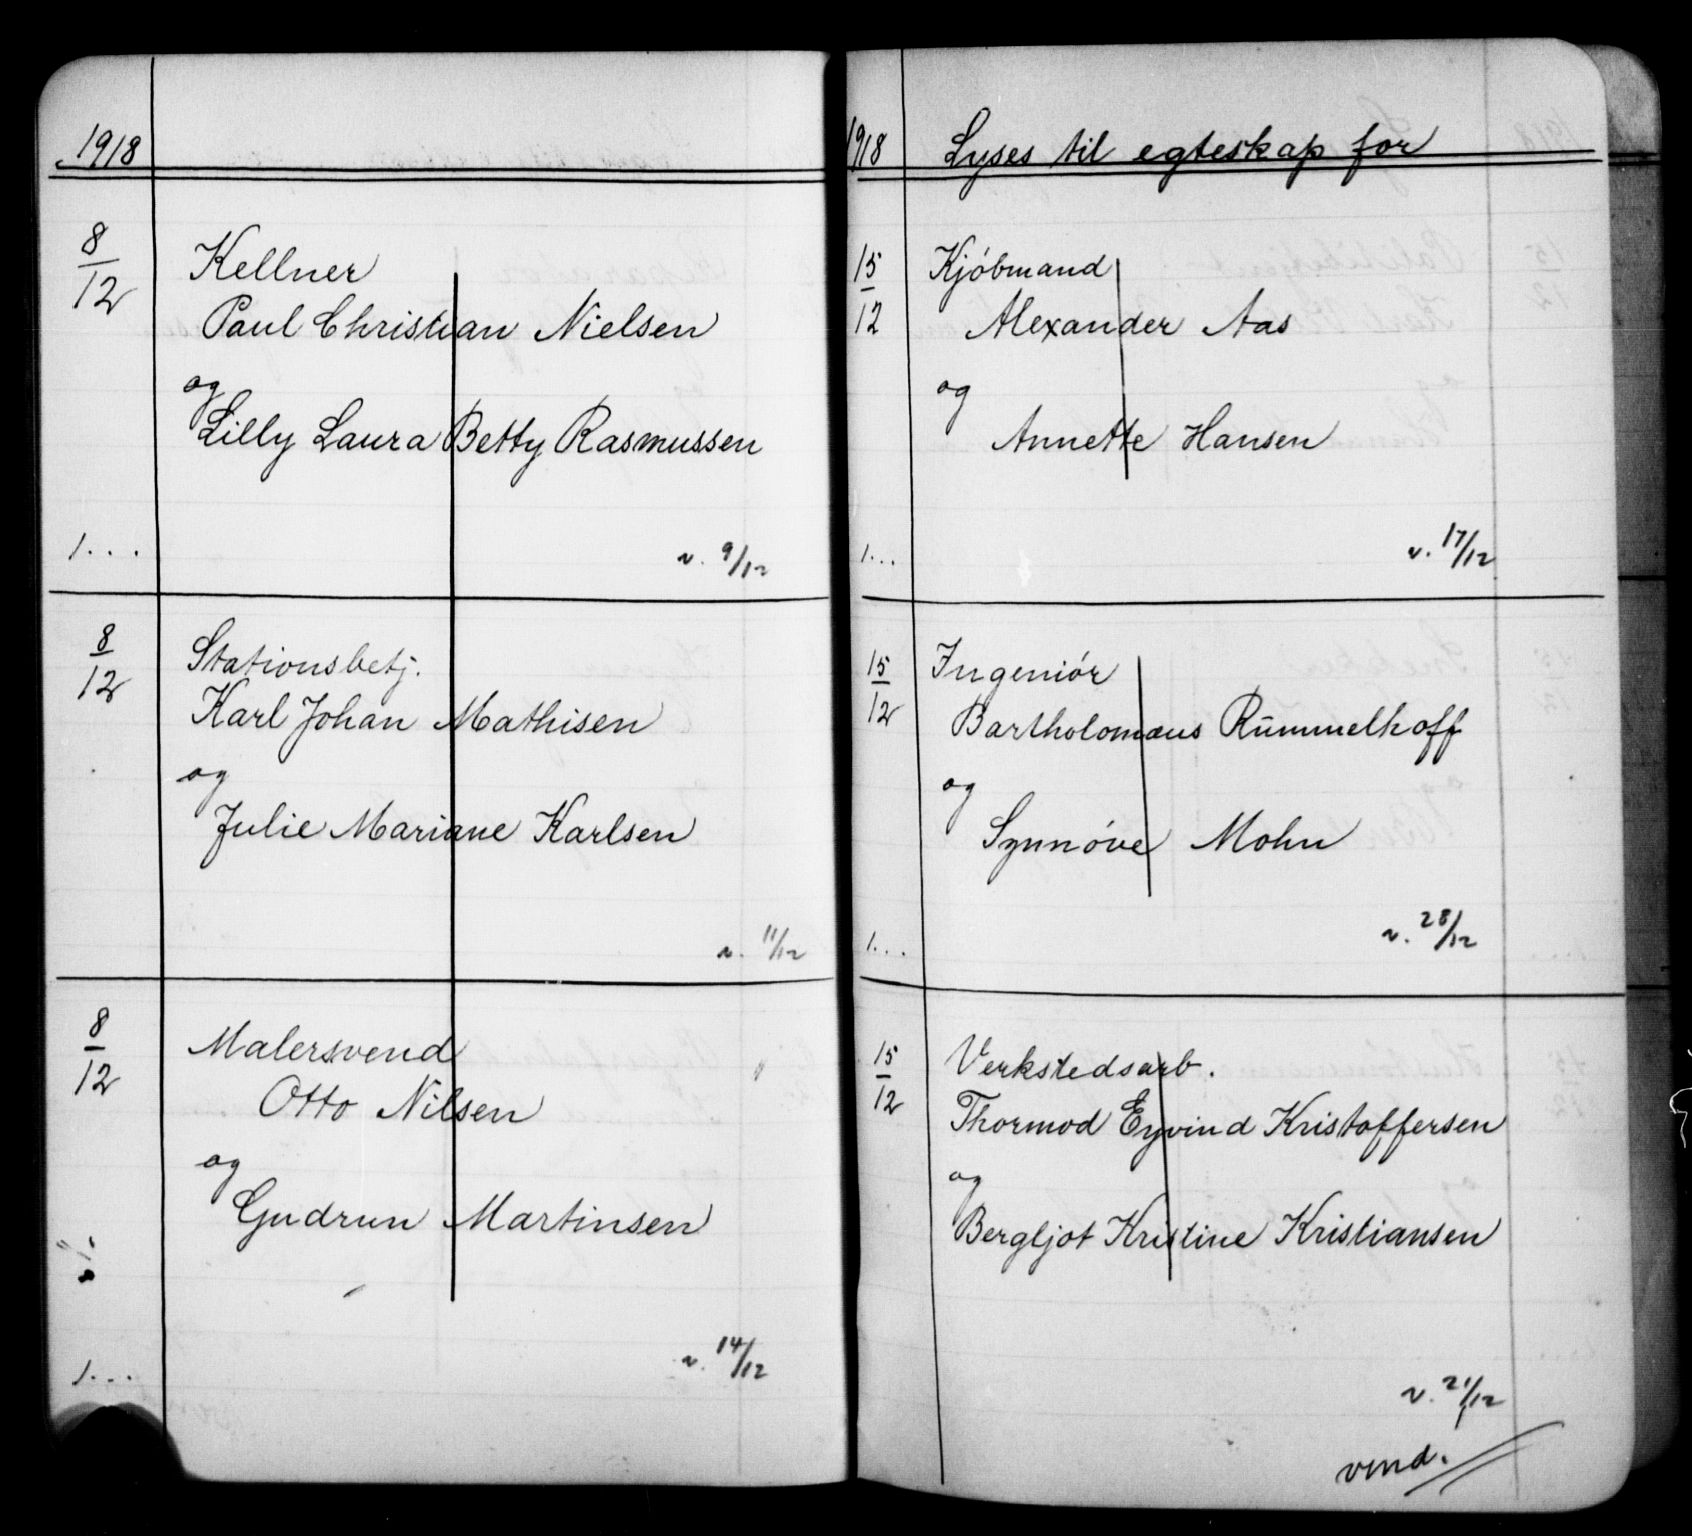 1918
8/12
Kellner
Paul Christian Nielsen
og
Lilly Laura Betty Rasmussen
1...
v. 9/12
8/12
Stationsbetj.
Karl Johan Mathisen
og
Julie Mariane Karlsen
v. 11/12
8/12
Malersvend
Otto Nilsen
og
Gudrun Martinsen
1...
v. 14/12
1918
Lyses til egteskap for
15/12
Kjöbmand
Alexander Aas
og
Annette Hansen
1...
v. 17/12
15/12
Ingeniór
Bartholomæus Rummelhoff
og
Synnóve Mohn
1...
v. 28/12
15/12
Verkstedsarb.
Thormod Eyvind Kristoffersen
og
Bergljot Kristine Kristiansen
v. 21/12
vend.